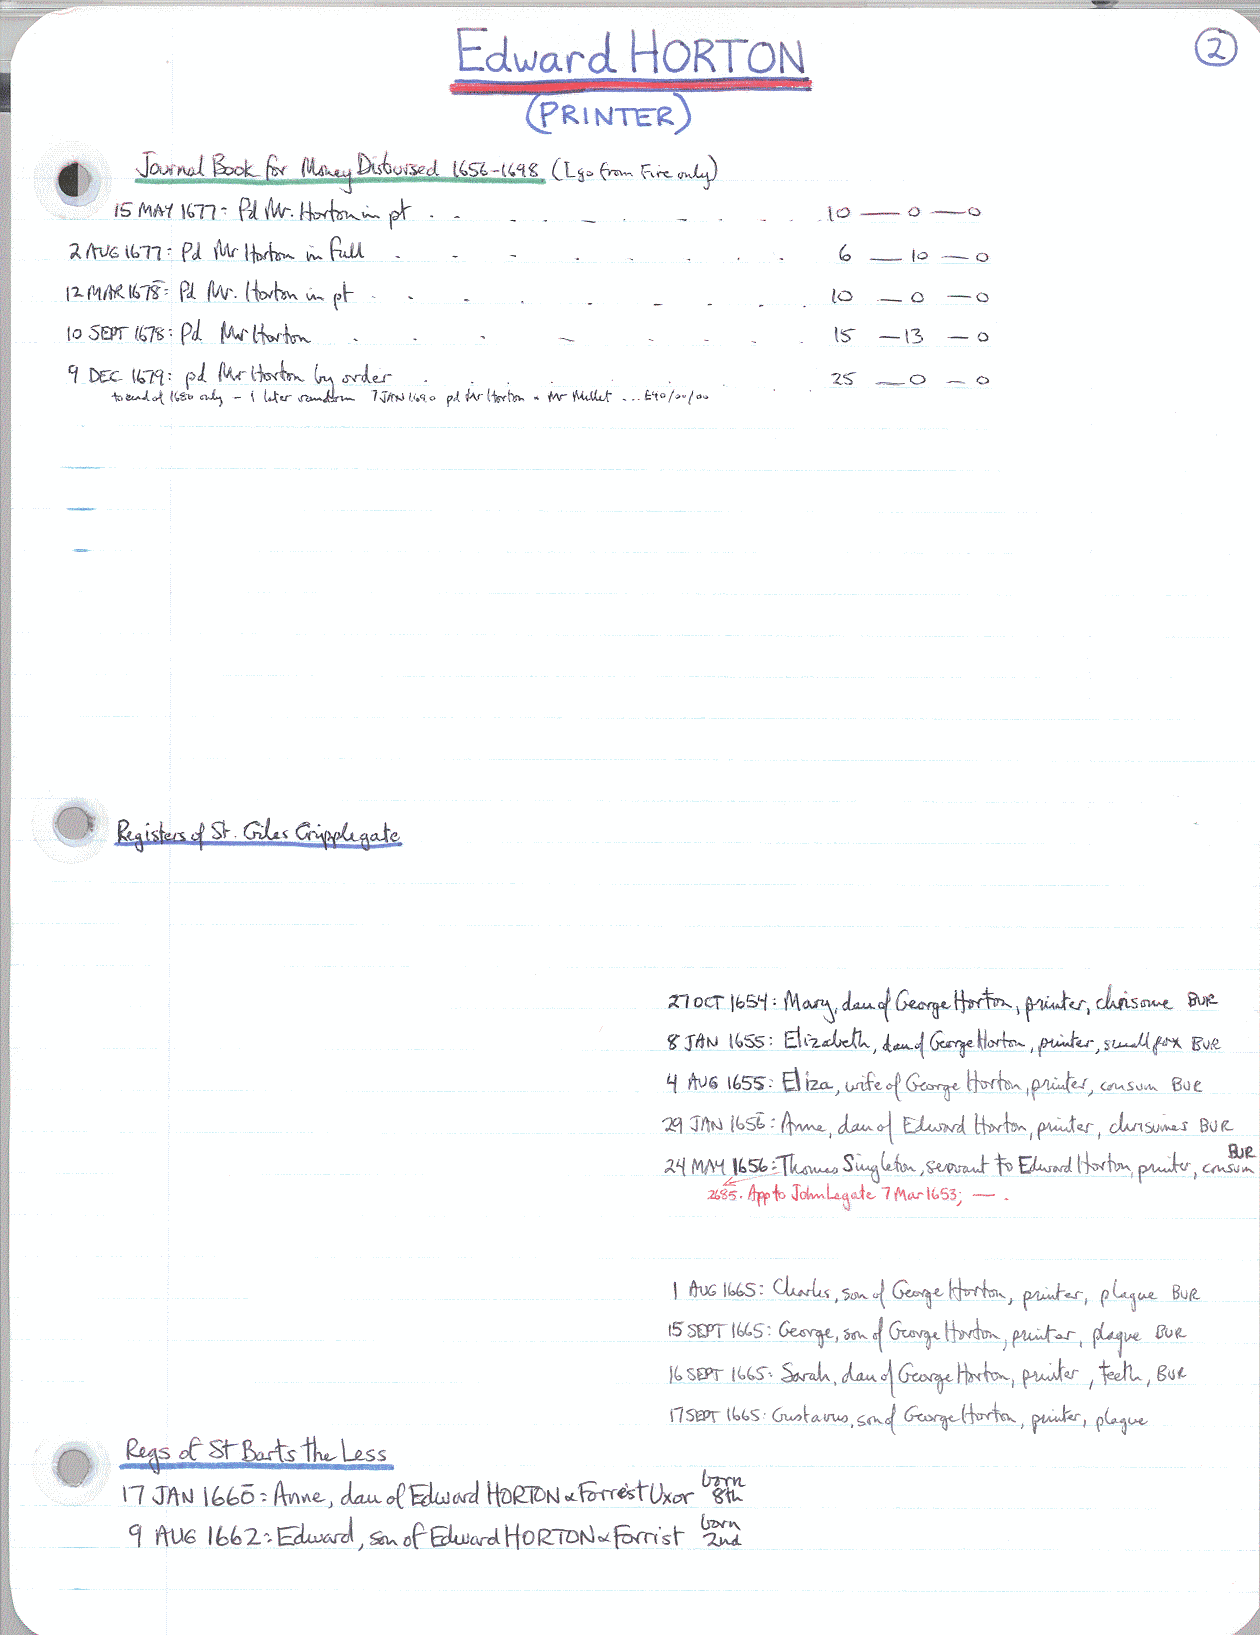 Edward HORTON
②
(PRINTER)
Journal Book for Money Disbursed 1656-1698 (I go from Fire only)
15 MAY 1677: Pd Mr. Horton in pt . . . . . . . . 10 — 0 — 0
2 AUG 1677: Pd Mr Horton in full . . . . . . . . 6 — 10 — 0
12 MAR 1678: Pd Mr. Horton in pt . . . . . . . . 10 — 0 — 0
10 SEPT 1678: Pd Mr Horton . . . . . . . 15 — 13 — 0
9 DEC 1679: pd Mr Horton by order . . . . . . 25 — 0 — 0
to end of 1680 only - 1 later random 7 JAN 1690 pd Mr Horton & Mr Millet ... £40/00/00
Registers of St. Giles Cripplegate
27 OCT 1654: Mary, dau of George Horton, printer, chrisome BUR
8 JAN 1655: Elizabeth, dau of George Horton, printer, small pox BUR
4 AUG 1655: Eliza, wife of George Horton, printer, consum BUR
29 JAN 1656: Anne, dau of Edward Horton, printer, chrisomes BUR
24 MAY 1656: Thomas Singleton, servant to Edward Horton, printer, consum BUR
2685. App to John Legate 7 Mar 1653; — .
1 AUG 1665: Charles, son of George Horton, printer, plague BUR
15 SEPT 1665: George, son of George Horton, printer, plague BUR
16 SEPT 1665: Sarah, dau of George Horton, printer, teeth, BUR
17 SEPT 1665: Gustavus, son of George Horton, printer, plague
Regs of St Barts the Less
17 JAN 1660: Anne, dau of Edward HORTON & Forrest Uxor born 8th
9 AUG 1662: Edward, son of Edward HORTON & Forrist born 2nd